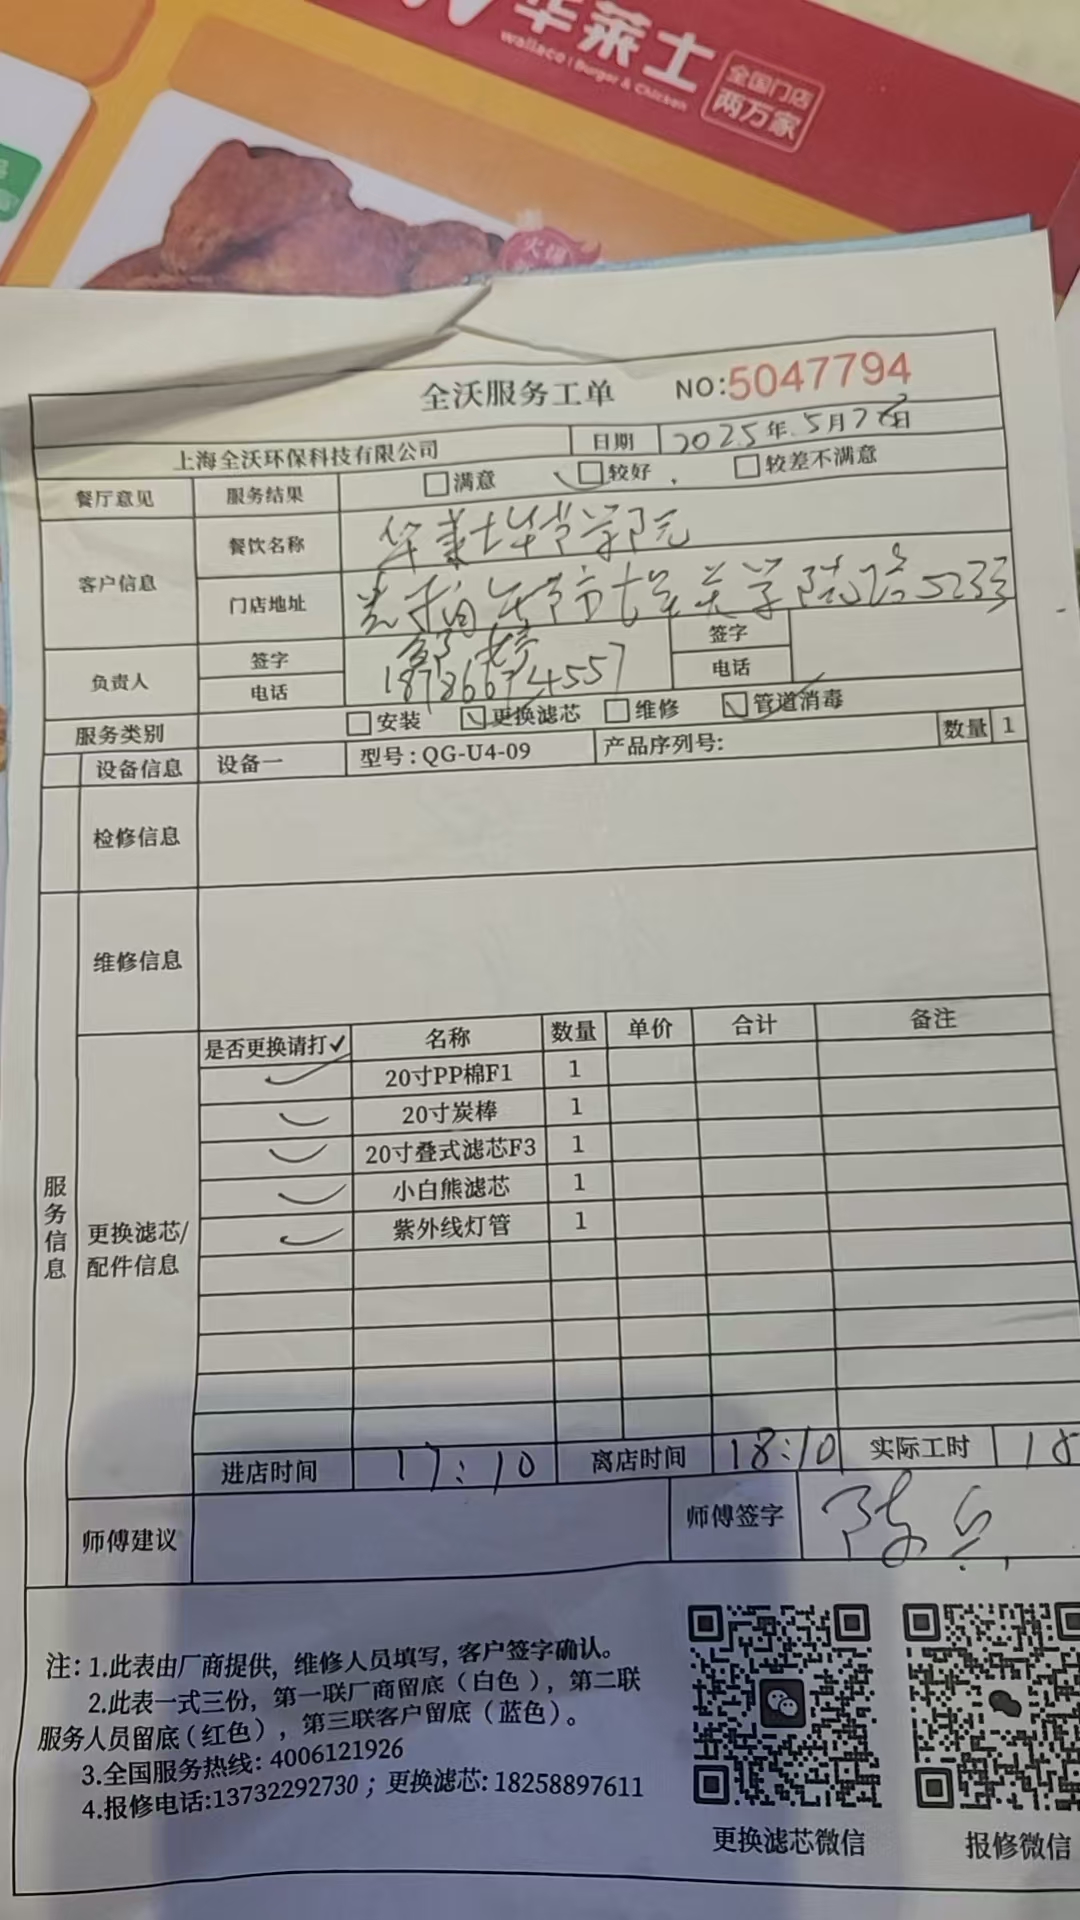 华莱士
wallace | Burger & Chicken
全国门店
两万家
全沃服务工单 NO:5047794
上海全沃环保科技有限公司 日期 2025年5月2 日
餐厅意见 服务结果 满意 较好 较差不满意
客户信息 餐饮名称 华莱士毕节学院
门店地址
负责人 签字 签字
电话 18786674557 电话
服务类别 安装 更换滤芯 维修 管道消毒
设备信息 设备一 型号:QG-U4-09 产品序列号: 数量 1
检修信息
维修信息
服务信息
更换滤芯/配件信息
是否更换请打✓ 名称 数量 单价 合计 备注
✓ 20寸PP棉F1 1
✓ 20寸炭棒 1
✓ 20寸叠式滤芯F3 1
✓ 小白熊滤芯 1
✓ 紫外线灯管 1
进店时间 17:10 离店时间 18:10 实际工时 18
师傅建议 师傅签字
注: 1.此表由厂商提供, 维修人员填写, 客户签字确认。
2.此表一式三份, 第一联厂商留底(白色), 第二联
服务人员留底(红色), 第三联客户留底(蓝色)。
3.全国服务热线: 4006121926
4.报修电话:13732292730; 更换滤芯: 18258897611
更换滤芯微信 报修微信